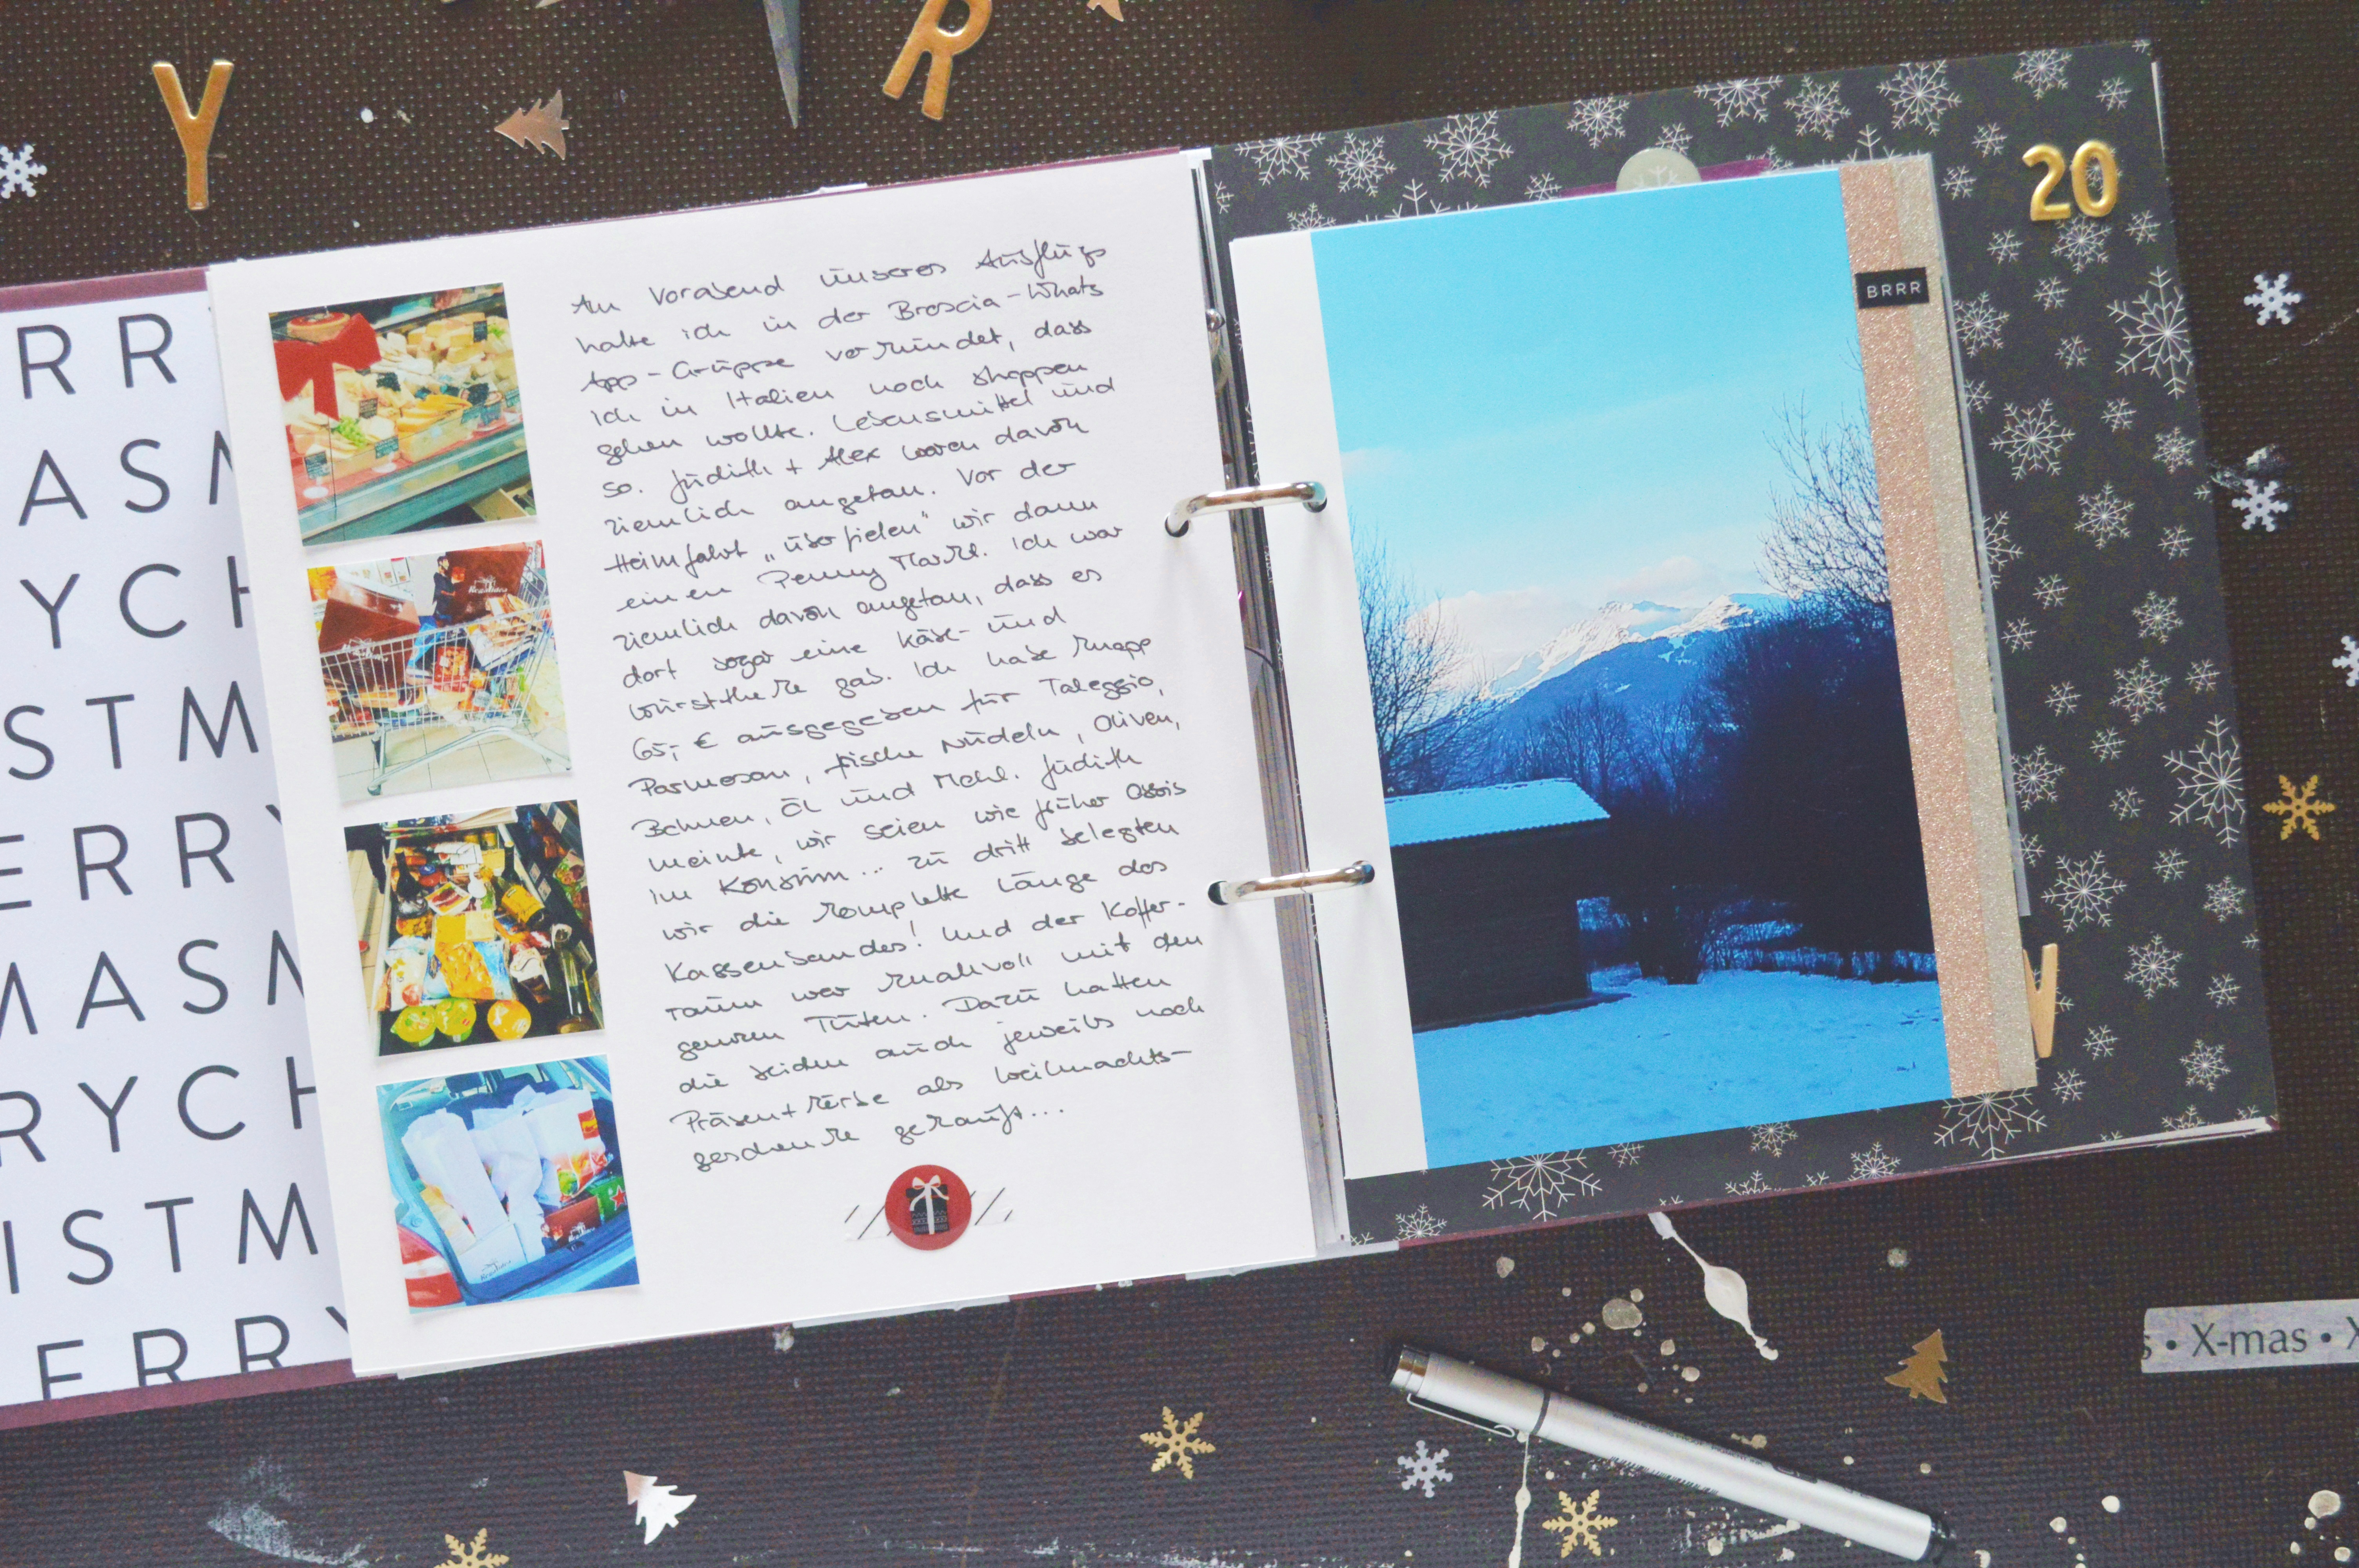 Y
R
RR
ASM
YCH
STM
ERRY
MASM
RYCH
ISTM
ERRY
Am Vorabend unseres Ausflugs
hatte ich in der Brescia-Whats
App-Gruppe verkündet, dass
ich in Italien noch shoppen
gehen wollte. Lebensmittel und
so. Judith + Alex waren davon
ziemlich angetan. Vor der
Heimfahrt „überfielen“ wir dann
einen Penny Markt. Ich war
ziemlich davon angetan, dass es
dort sogar eine Käse- und
Wursttheke gab. Ich habe knapp
65,- € ausgegeben für Taleggio,
Parmesan, frische Nudeln, Oliven,
Bohnen, Öl und Mehl. Judith
meinte, wir seien wie früher Ossis
im Konsum... zu dritt belegten
wir die komplette Länge des
Kassenbandes! Und der Koffer-
raum war knallvoll mit den
ganzen Tüten. Dazu hatten
die beiden auch jeweils noch
Präsentkörbe als Weihnachts-
geschenke gekauft...
20
BRRR
W
s • X-mas • X